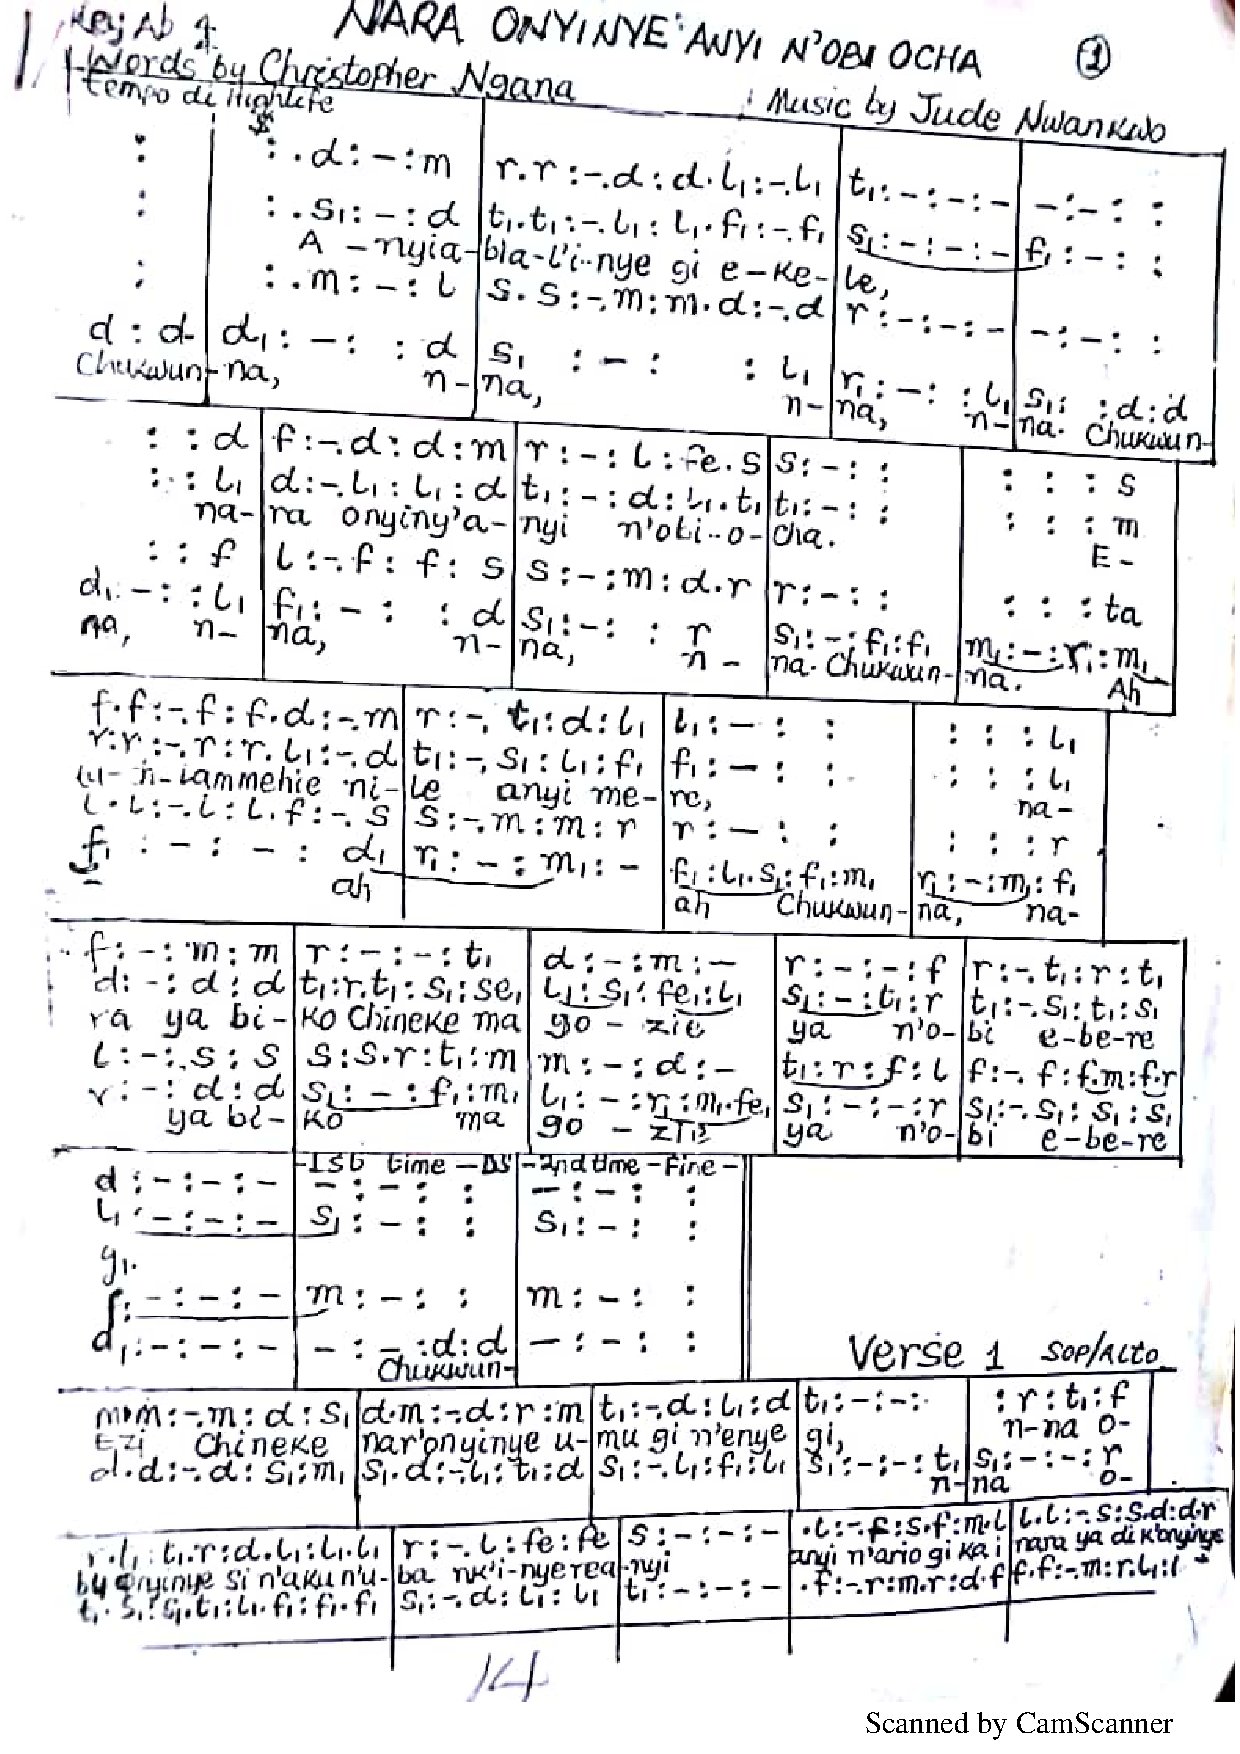 Key Ab
NARA ONYINYE ANYI N'OBI OCHA ①
Words by Christopher Ngana
tempo di Highlife
Music by Jude Nwankwo
: :.d:-:m r.r:-.d:d.l₁:-.l₁ t₁:-:-:- -:-: :
: :.s₁:-:d t₁.t₁:-.l₁:l₁.f₁:-.f₁ s₁:-:-:- f₁:-: :
A-nyia-bia-l'i-nye gi e-ke-le,
: :.m:-:l s.s:-.m:m.d:-.d r:-:-:- -:-: :
d:d d₁:-: :d s₁:-: :l₁ r₁:-: :l₁ s₁: :d:d
Chukwun-na, n-na, n-na, n-na. Chukwun-
: :d f:-.d:d:m r:-:l:fe.s s:-: : : : :s
: :l₁ d:-.l₁:l₁:d t₁:-:d:l₁.t₁ t₁:-: : : : :m
na-ra onyiny'a-nyi n'obi-o-cha. E-
: :f l:-.f:f:s s:-:m:d.r r:-: : : : :ta
d₁:-: :l₁ f₁:-: :d s₁:-: :r s₁:-:f₁:f₁ m₁:-:r₁:m₁
na, n-na, n-na, n-na. Chukwun-na. Ah
f.f:-.f:f.d:-.m r:-.t₁:d:l₁ l₁:-: : : : :l₁
r.r:-.r:r.l₁:-.d t₁:-.s₁:l₁:f₁ f₁:-: : : : :l₁
n-iammehie ni-le anyi me-re, na-
l.l:-.l:l.f:-.s s:-.m:m:r r:-: : : : :r
f₁:-:-:d₁ r₁:-:m₁:- f₁:l₁.s₁:f₁:m₁ r₁:-:m₁:f₁
ah ah Chukwun-na, na-
f:-:m:m r:-:-:t₁ d:-:m:- r:-:-:f r:-.t₁:r:t₁
d:-:d:d t₁:r.t₁:s₁:se₁ l₁:s₁:fe₁:l₁ s₁:-:t₁:r t₁:-.s₁:t₁:s₁
ra ya bi-ko Chineke ma go-zie ya n'o-bi e-be-re
l:-:s:s s:s.r:t₁:m m:-:d:- t₁:r:f:l f:-.f:f.m:f.r
r:-:d:d s₁:-:f₁:m₁ l₁:-:r₁:m₁.fe₁ s₁:-:-:r s₁:-.s₁:s₁:s₁
ya bi-ko ma go-zie ya n'o-bi e-be-re
-1st time-DS-2nd time-Fine-
d:-:-:- -:-: : -:-: :
l₁:-:-:- s₁:-: : s₁:-: :
gi.
f:-:-:- m:-: : m:-: :
d₁:-:-:- -:-:d:d -:-: :
Chukwun-
Verse 1 SOP/ALTO
m.m:-.m:d:s₁ d.m:-.d:r:m t₁:-.d:l₁:d t₁:-:-: :r:t₁:f
Ezi Chineke nar'onyinye u-mu gi n'enye gi, n-na o-
d.d:-.d:s₁:m₁ s₁.d:-.l₁:t₁:d s₁:-.l₁:f₁:l₁ s₁:-:-:t₁ s₁:-:-:r
n-na o-
r.l₁:t₁.r:d.l₁:l₁.l₁ r:-.l:fe:fe s:-:-:- .l:-.f:s.f:m.l l.l:-.s:s.d:d.r
bu onyinye si n'aku n'u-ba nk'i-nyerea-nyi anyi n'ario gi ka i nara ya di k'onyinye
t₁.s₁:s₁.t₁:l₁.f₁:f₁.f₁ s₁:-.d:l₁:l₁ t₁:-:-:- .f:-.r:m.r:d.f f.f:-.m:r.l₁:
14
Scanned by CamScanner